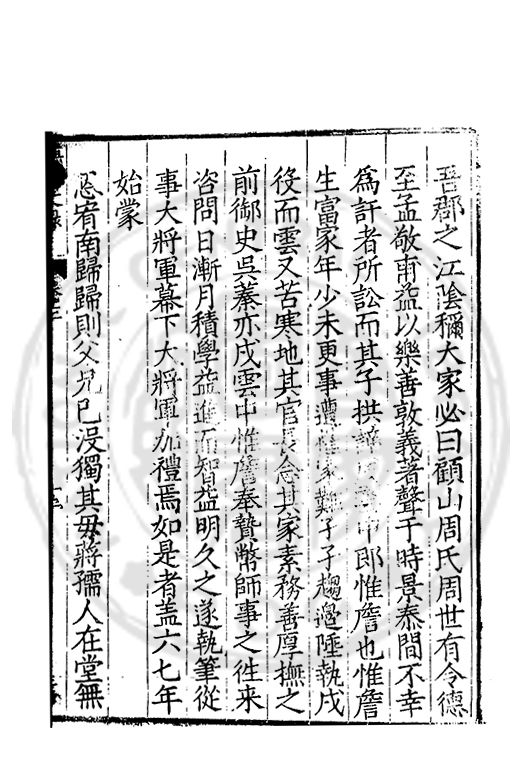 吾郡之江陰稱大家必曰顧山周氏周世有令德
至孟敬甫益以樂善敦義著聲于時景泰間不幸
為訐者所訟而其子拱
中郎惟詹也惟詹
生富家年少未更事遭
家難孑孑趨邊陲執戍
役而雲又苦寒地其官長念其家素務善厚撫之
前御史吳蓁亦戍雲中惟詹奉贄幣師事之徃来
咨問日漸月積學益進而智益明久之遂執筆從
事大將軍幕下大將軍加禮焉如是者盖六七年
始蒙
恩宥南歸歸則父兄已没獨其母蔣孺人在堂無